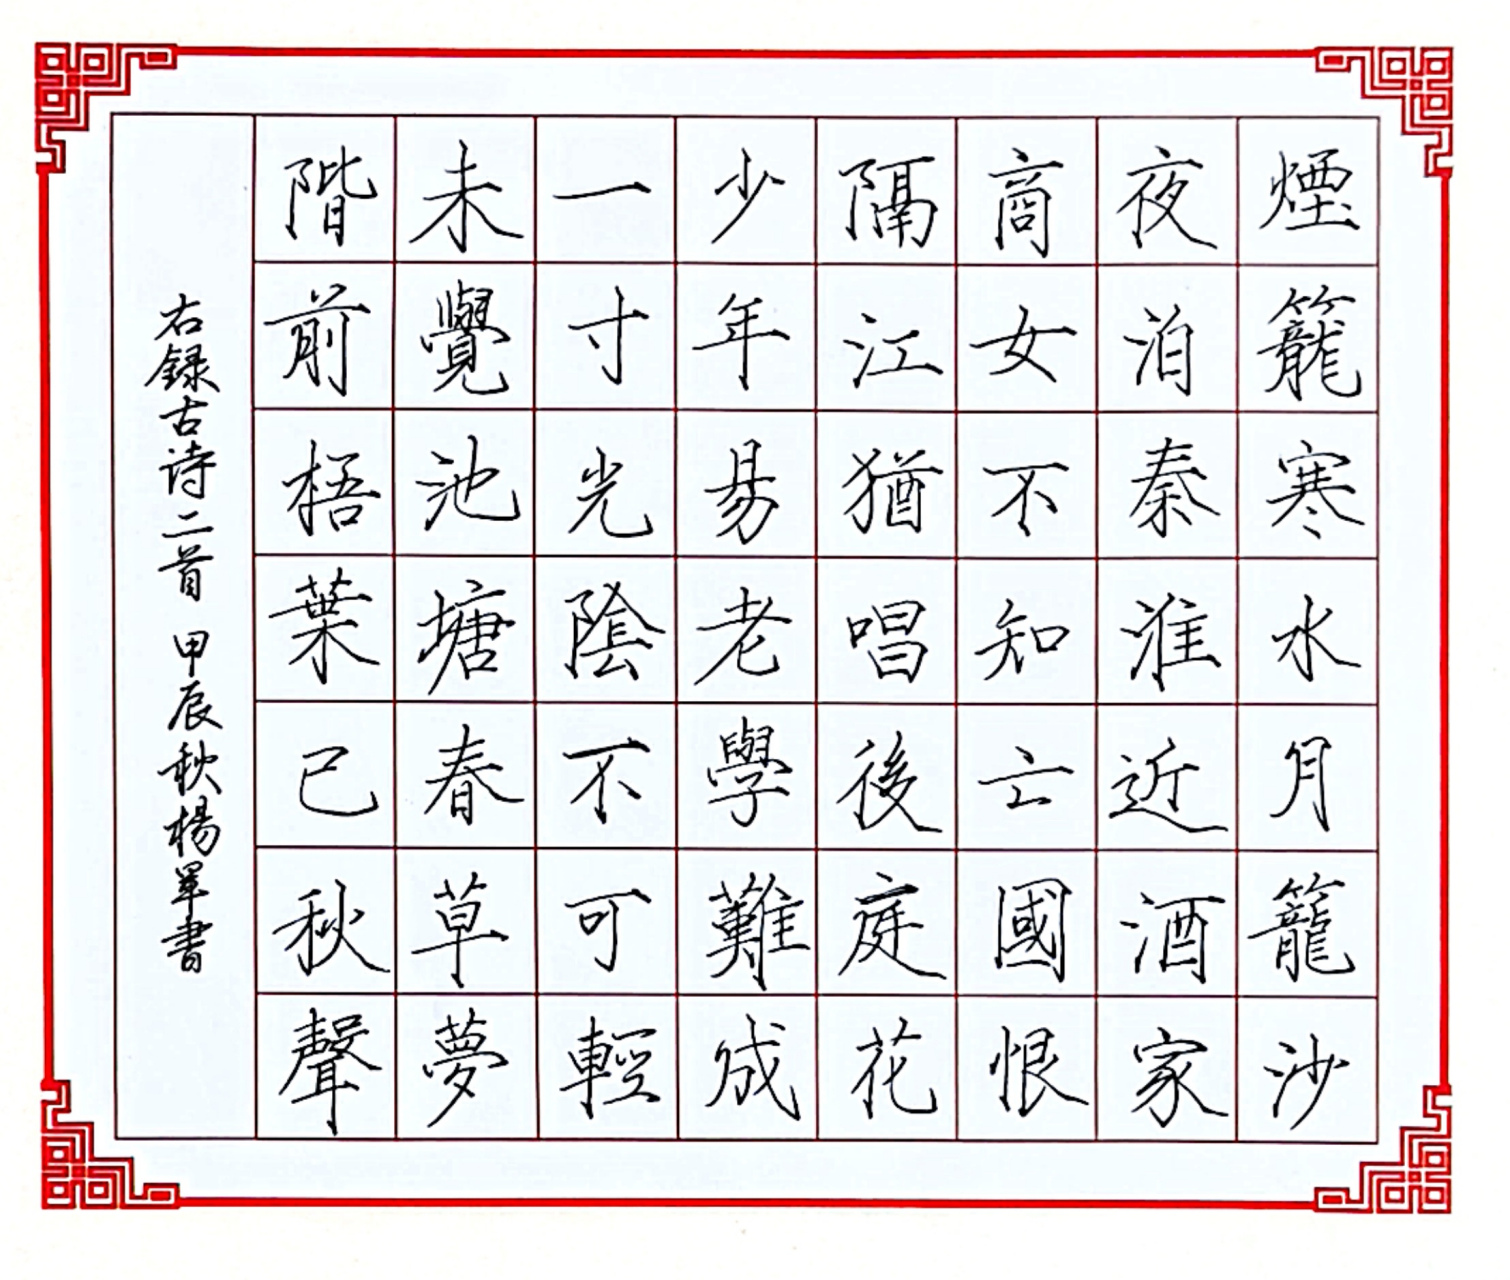 煙籠寒水月籠沙
夜泊秦淮近酒家
商女不知亡國恨
隔江猶唱後庭花
少年易老學難成
一寸光陰不可輕
未覺池塘春草夢
階前梧葉已秋聲
右録古诗二首 甲辰秋楊軍書